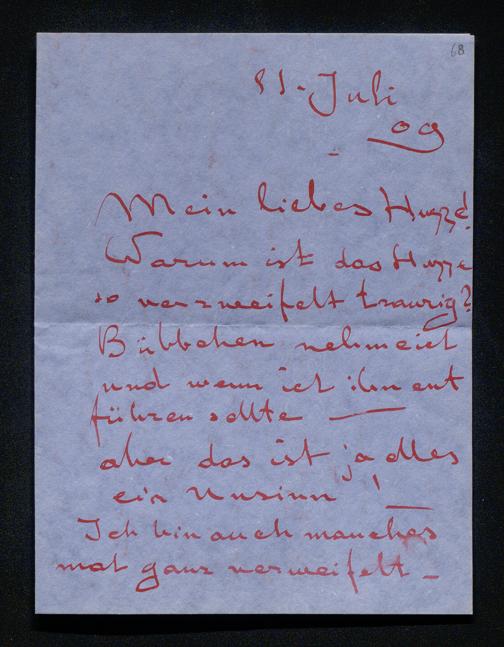 68
31. Juli
09
Mein liebes Huzze!
Warum ist das Huzze
so verzweifelt traurig?
Bübbchen nehme ich
und wenn ich ihn ent
führen sollte —
aber das ist ja alles
ein Unsinn! —
Ich bin auch manches
mal ganz verzweifelt –